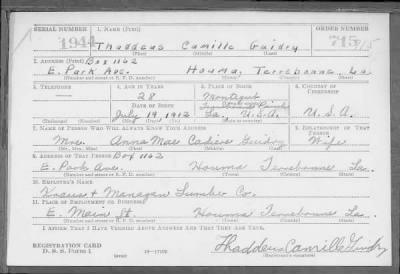 SERIAL NUMBER 1. NAME (Print) ORDER NUMBER
1944 Thaddeus Camille Guidry 715
(First) (Middle) (Last)
2. ADDRESS (Print) Box 1162
E. Park Ave. Houma, Terrebonne, La.
(Number and street or R. F. D. number) (Town) (County) (State)
3. TELEPHONE 4. AGE IN YEARS 5. PLACE OF BIRTH 6. COUNTRY OF CITIZENSHIP
28 Montegut
DATE OF BIRTH
July 19 1912 La. U.S.A. U.S.A.
(Exchange) (Number) (Mo.) (Day) (Yr.) (State or country)
7. NAME OF PERSON WHO WILL ALWAYS KNOW YOUR ADDRESS 8. RELATIONSHIP OF THAT PERSON
Mrs. Anna Mae Cadiere Guidry Wife
(Mr., Mrs., Miss) (First) (Middle) (Last)
9. ADDRESS OF THAT PERSON Box 1162
E. Park Ave. Houma Terrebonne La.
(Number and street or R. F. D. number) (Town) (County) (State)
10. EMPLOYER'S NAME
& Managan Lumber Co.
11. PLACE OF EMPLOYMENT OR BUSINESS
E. Main St. Houma Terrebonne La.
(Number and street or R. F. D. number) (Town) (County) (State)
I AFFIRM THAT I HAVE VERIFIED ABOVE ANSWERS AND THAT THEY ARE TRUE.
REGISTRATION CARD
D. S. S. Form 1 Thaddeus Camille Guidry
(Registrant's signature)